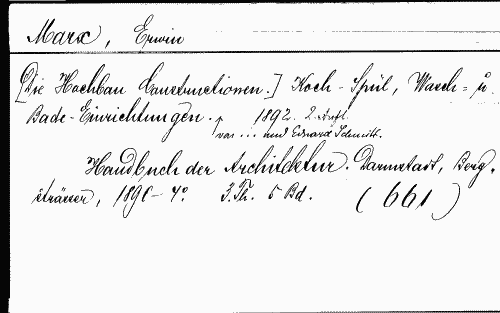 Marx, Erwin
[Die Hochbau Constructionen.] Koch-Spül, Wasch- u.
Bade-Einrichtungen. 1892. 2. Aufl.
von ... und Eduard Schmitt.
Handbuch der Architektur. Darmstadt, Berg-
strässer, 189 - 4°. 3. Th. 5 Bd. (661)